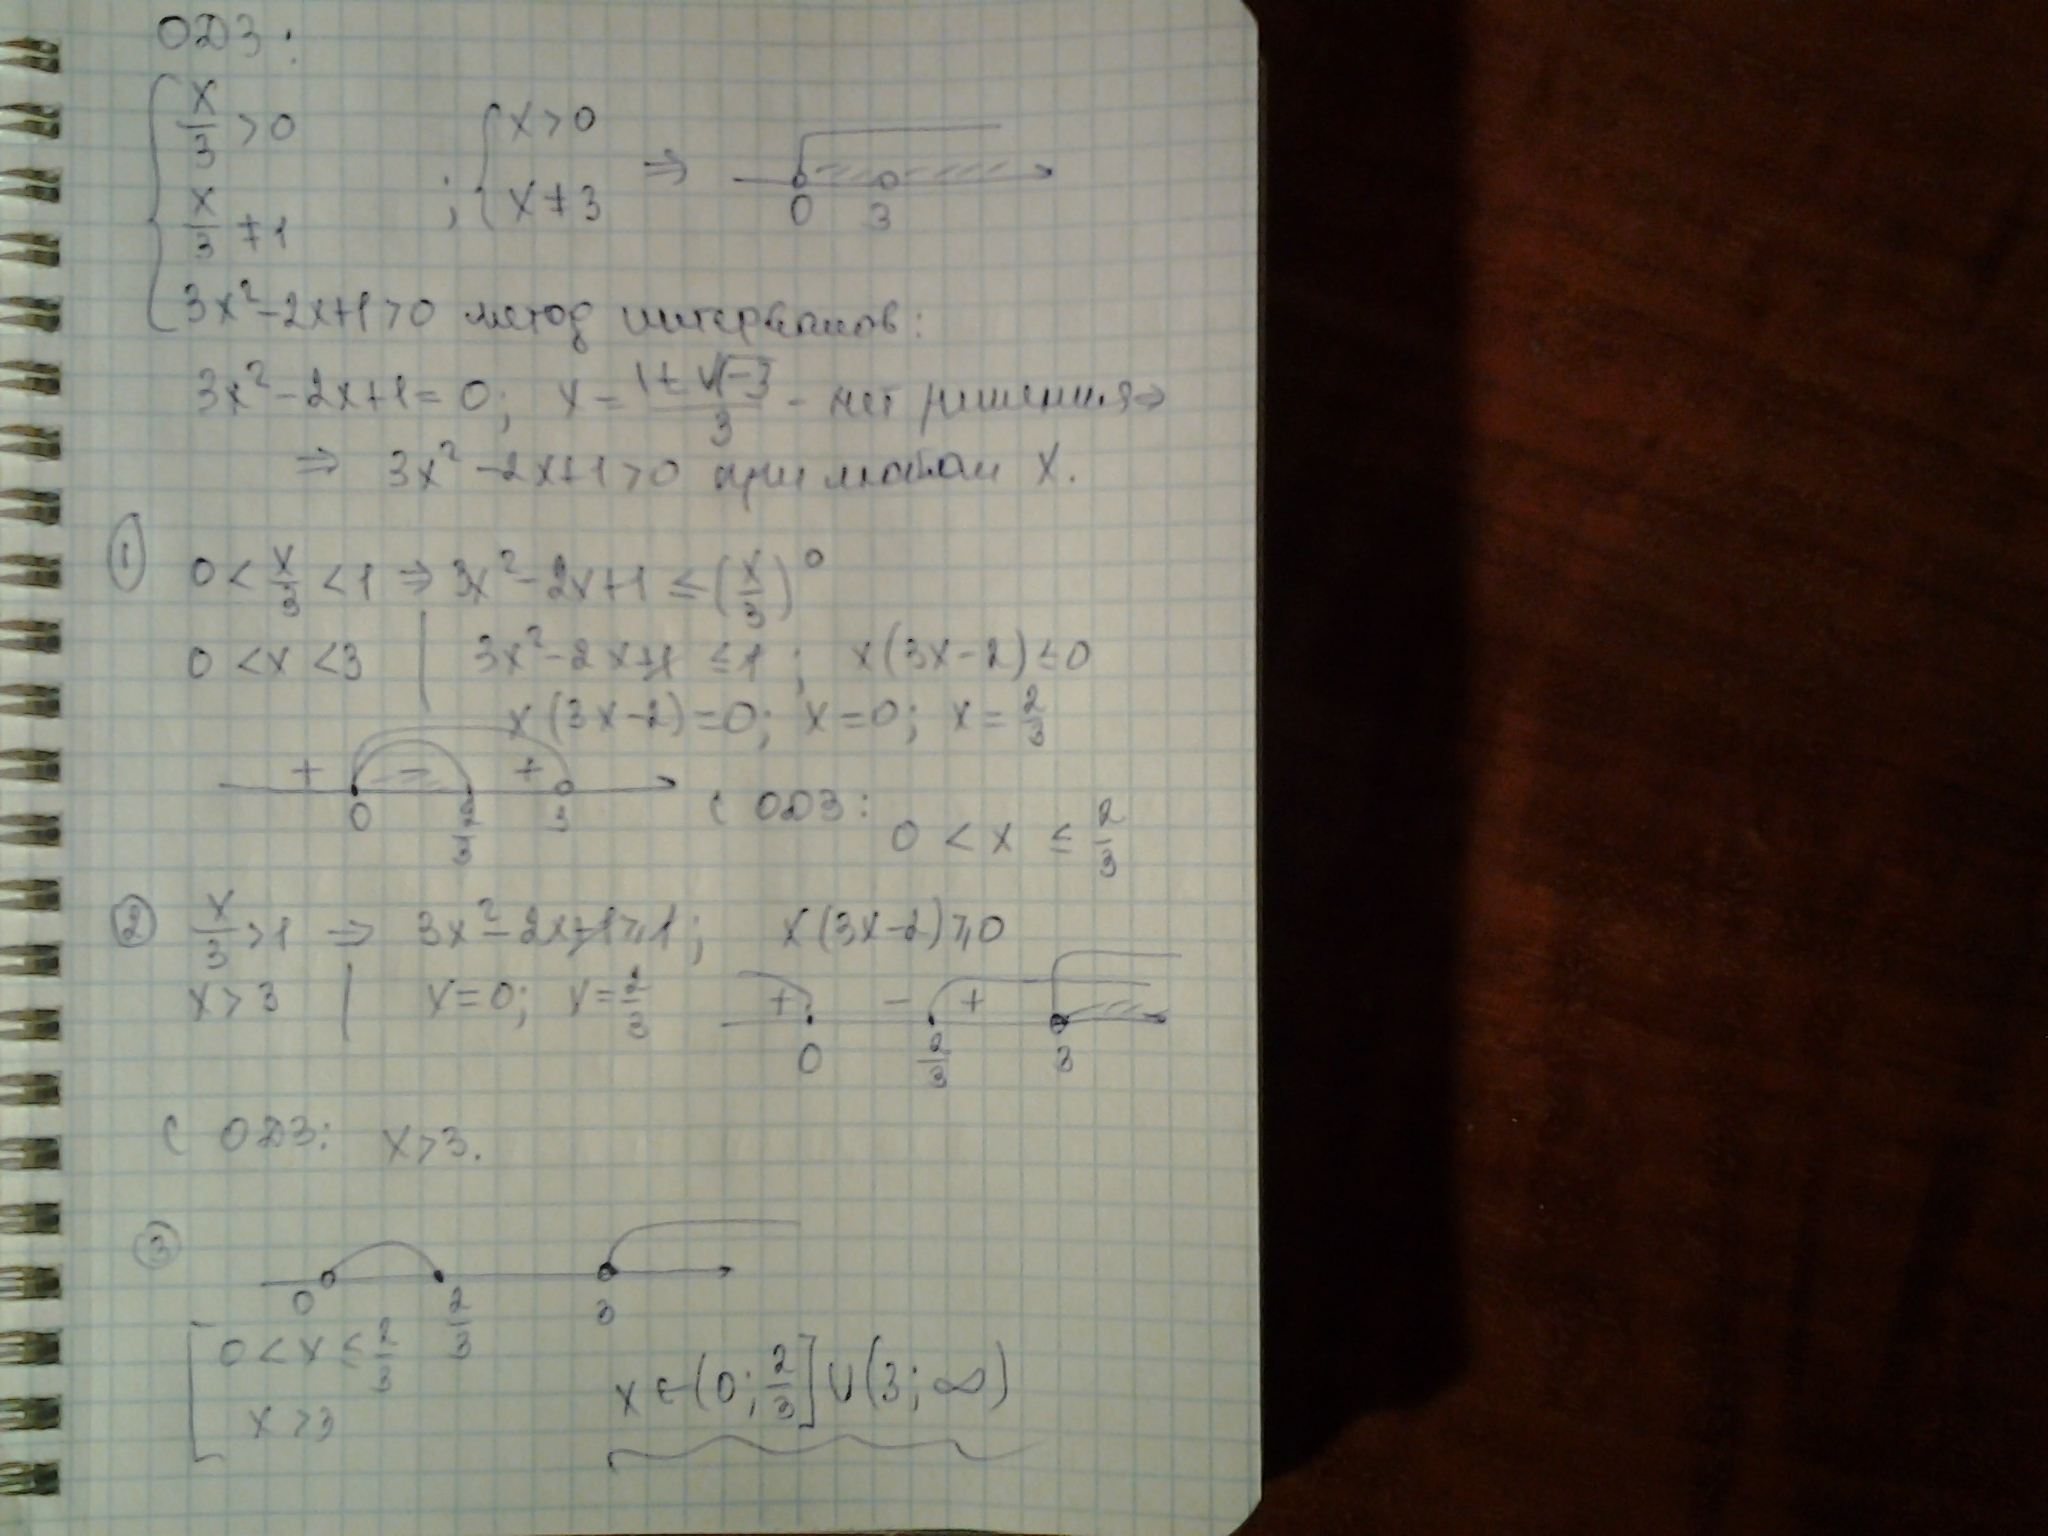 ОДЗ:
{ x/3 > 0 ; { x > 0 ⇒ 0 3
x/3 ≠ 1 x ≠ 3
3x² - 2x + 1 > 0 метод интервалов:
3x² - 2x + 1 = 0; x = (1 ± √(-3))/3 - нет решения ⇒
⇒ 3x² - 2x + 1 > 0 при любом x.
① 0 < x/3 < 1 ⇒ 3x² - 2x + 1 ≤ (x/3)⁰
0 < x < 3 | 3x² - 2x + 1 ≤ 1 ; x(3x - 2) ≤ 0
x(3x - 2) = 0; x = 0; x = 2/3
+ - +
0 2/3 3 С ОДЗ: 0 < x ≤ 2/3
② x/3 > 1 ⇒ 3x² - 2x + 1 ≥ 1; x(3x - 2) ≥ 0
x > 3 | x = 0; x = 2/3 + - +
0 2/3 3
С ОДЗ: x > 3.
③
0 2/3 3
[ 0 < x ≤ 2/3
x > 3 x ∈ (0; 2/3] ∪ (3; ∞)